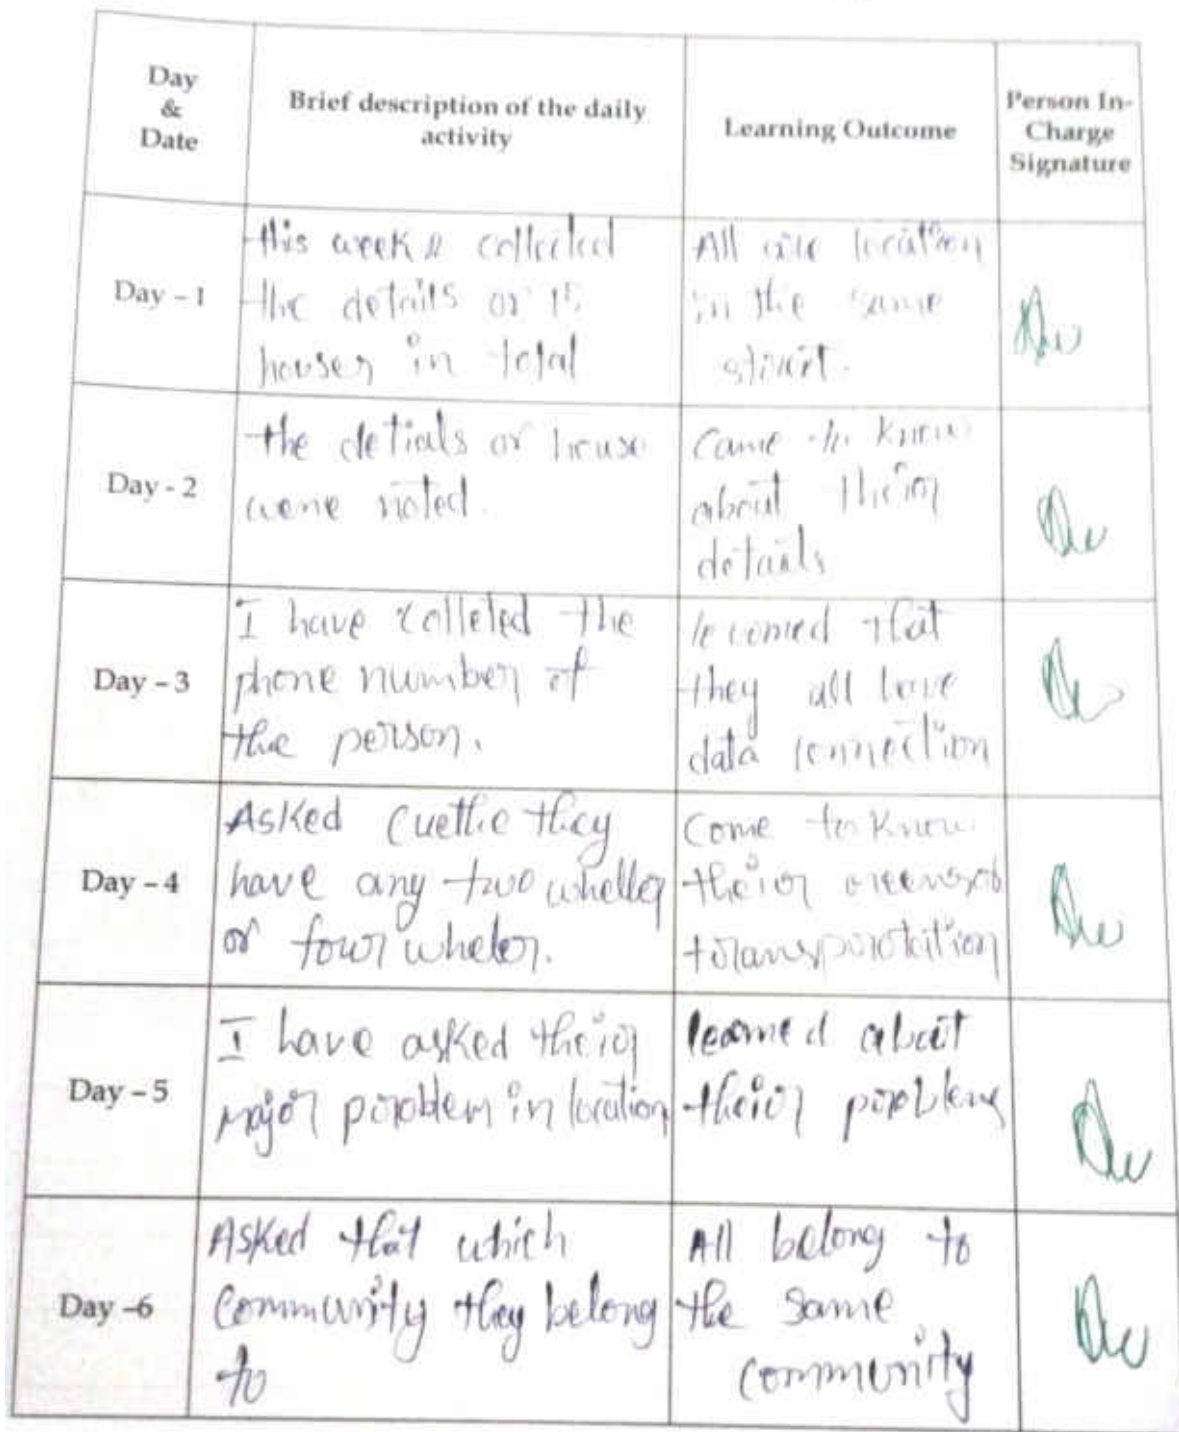 Day
&
Date
Brief description of the daily
activity
Learning Outcome
Person In-
Charge
Signature
Day – 1
this week collected
the details or 15
houses in total
All are location
in the same
Day - 2
the detials or house
were noted.
Came to know
about their
details
Day – 3
I have colleted the
phone number of
the person.
that
they all have
data connection
Day – 4
Asked they
have any two wheller
or four wheler.
Come to know
their
transportation
Day – 5
I have asked their
major problem in location
learned about
their problems
Day –6
Asked that which
Community they belong
to
All belong to
the same
community